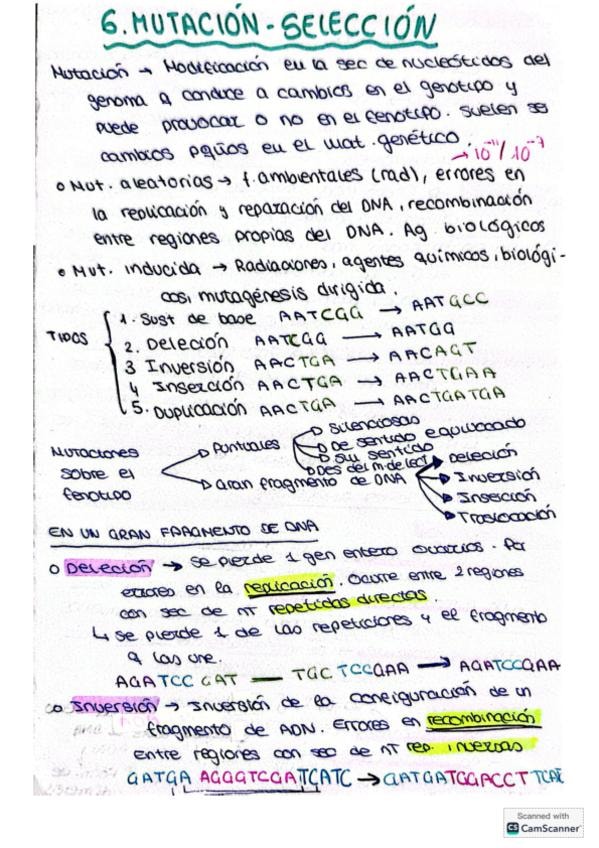 6. MUTACIÓN - SELECCIÓN
Mutación → Modificación en la sec de nucleótidos del
genoma q conduce a cambios en el genotipo y
puede provocar o no en el fenotipo. Suelen ser
cambios pqños en el mat. genético.
→ 10⁻¹¹/10⁻⁷
o Mut. aleatorias → f. ambientales (rad), errores en
la replicación y reparación del DNA, recombinación
entre regiones propias del DNA. Ag. biológicos
• Mut. inducida → Radiaciones, agentes químicos, biológi-
cos, mutagénesis dirigida.
TIPOS
1. Sust de base AATCGG → AATGCC
2. Deleción AATCGG → AATGG
3 Inversión AACTGA → AACAGT
4 Inserción AACTGA → AACTGAA
5. Duplicación AACTGA → AACTGATGA
Mutaciones
sobre el
fenotipo
Puntuales
Silenciosas
De sentido equivocado
Sin sentido
Des del m. de lect
Gran fragmento de DNA
Deleción
Inversión
Inserción
Traslocación
EN UN GRAN FRAGMENTO DE DNA
o Deleción → Se pierde 1 gen entero o varios. Por
errores en la replicación. Ocurre entre 2 regiones
con sec de NT repetidas directas.
↳ Se pierde 1 de las repeticiones y el fragmento
q las une.
AGATCC GAT — TGC TCCGAA → AGATCCGAA
o Inversión → Inversión de la configuración de un
fragmento de ADN. Errores en recombinación
entre regiones con sec de NT rep. inversas
GATGA AGGGTCGATCATC → GATGATGGACCT TCAT
Scanned with
CS CamScanner